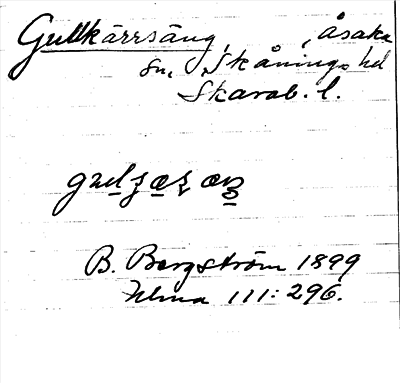 Gullkärrsäng, Åsaka
sn, Skånings hd
Skarab. l.
B. Bergström 1899
Ulma 111:296.